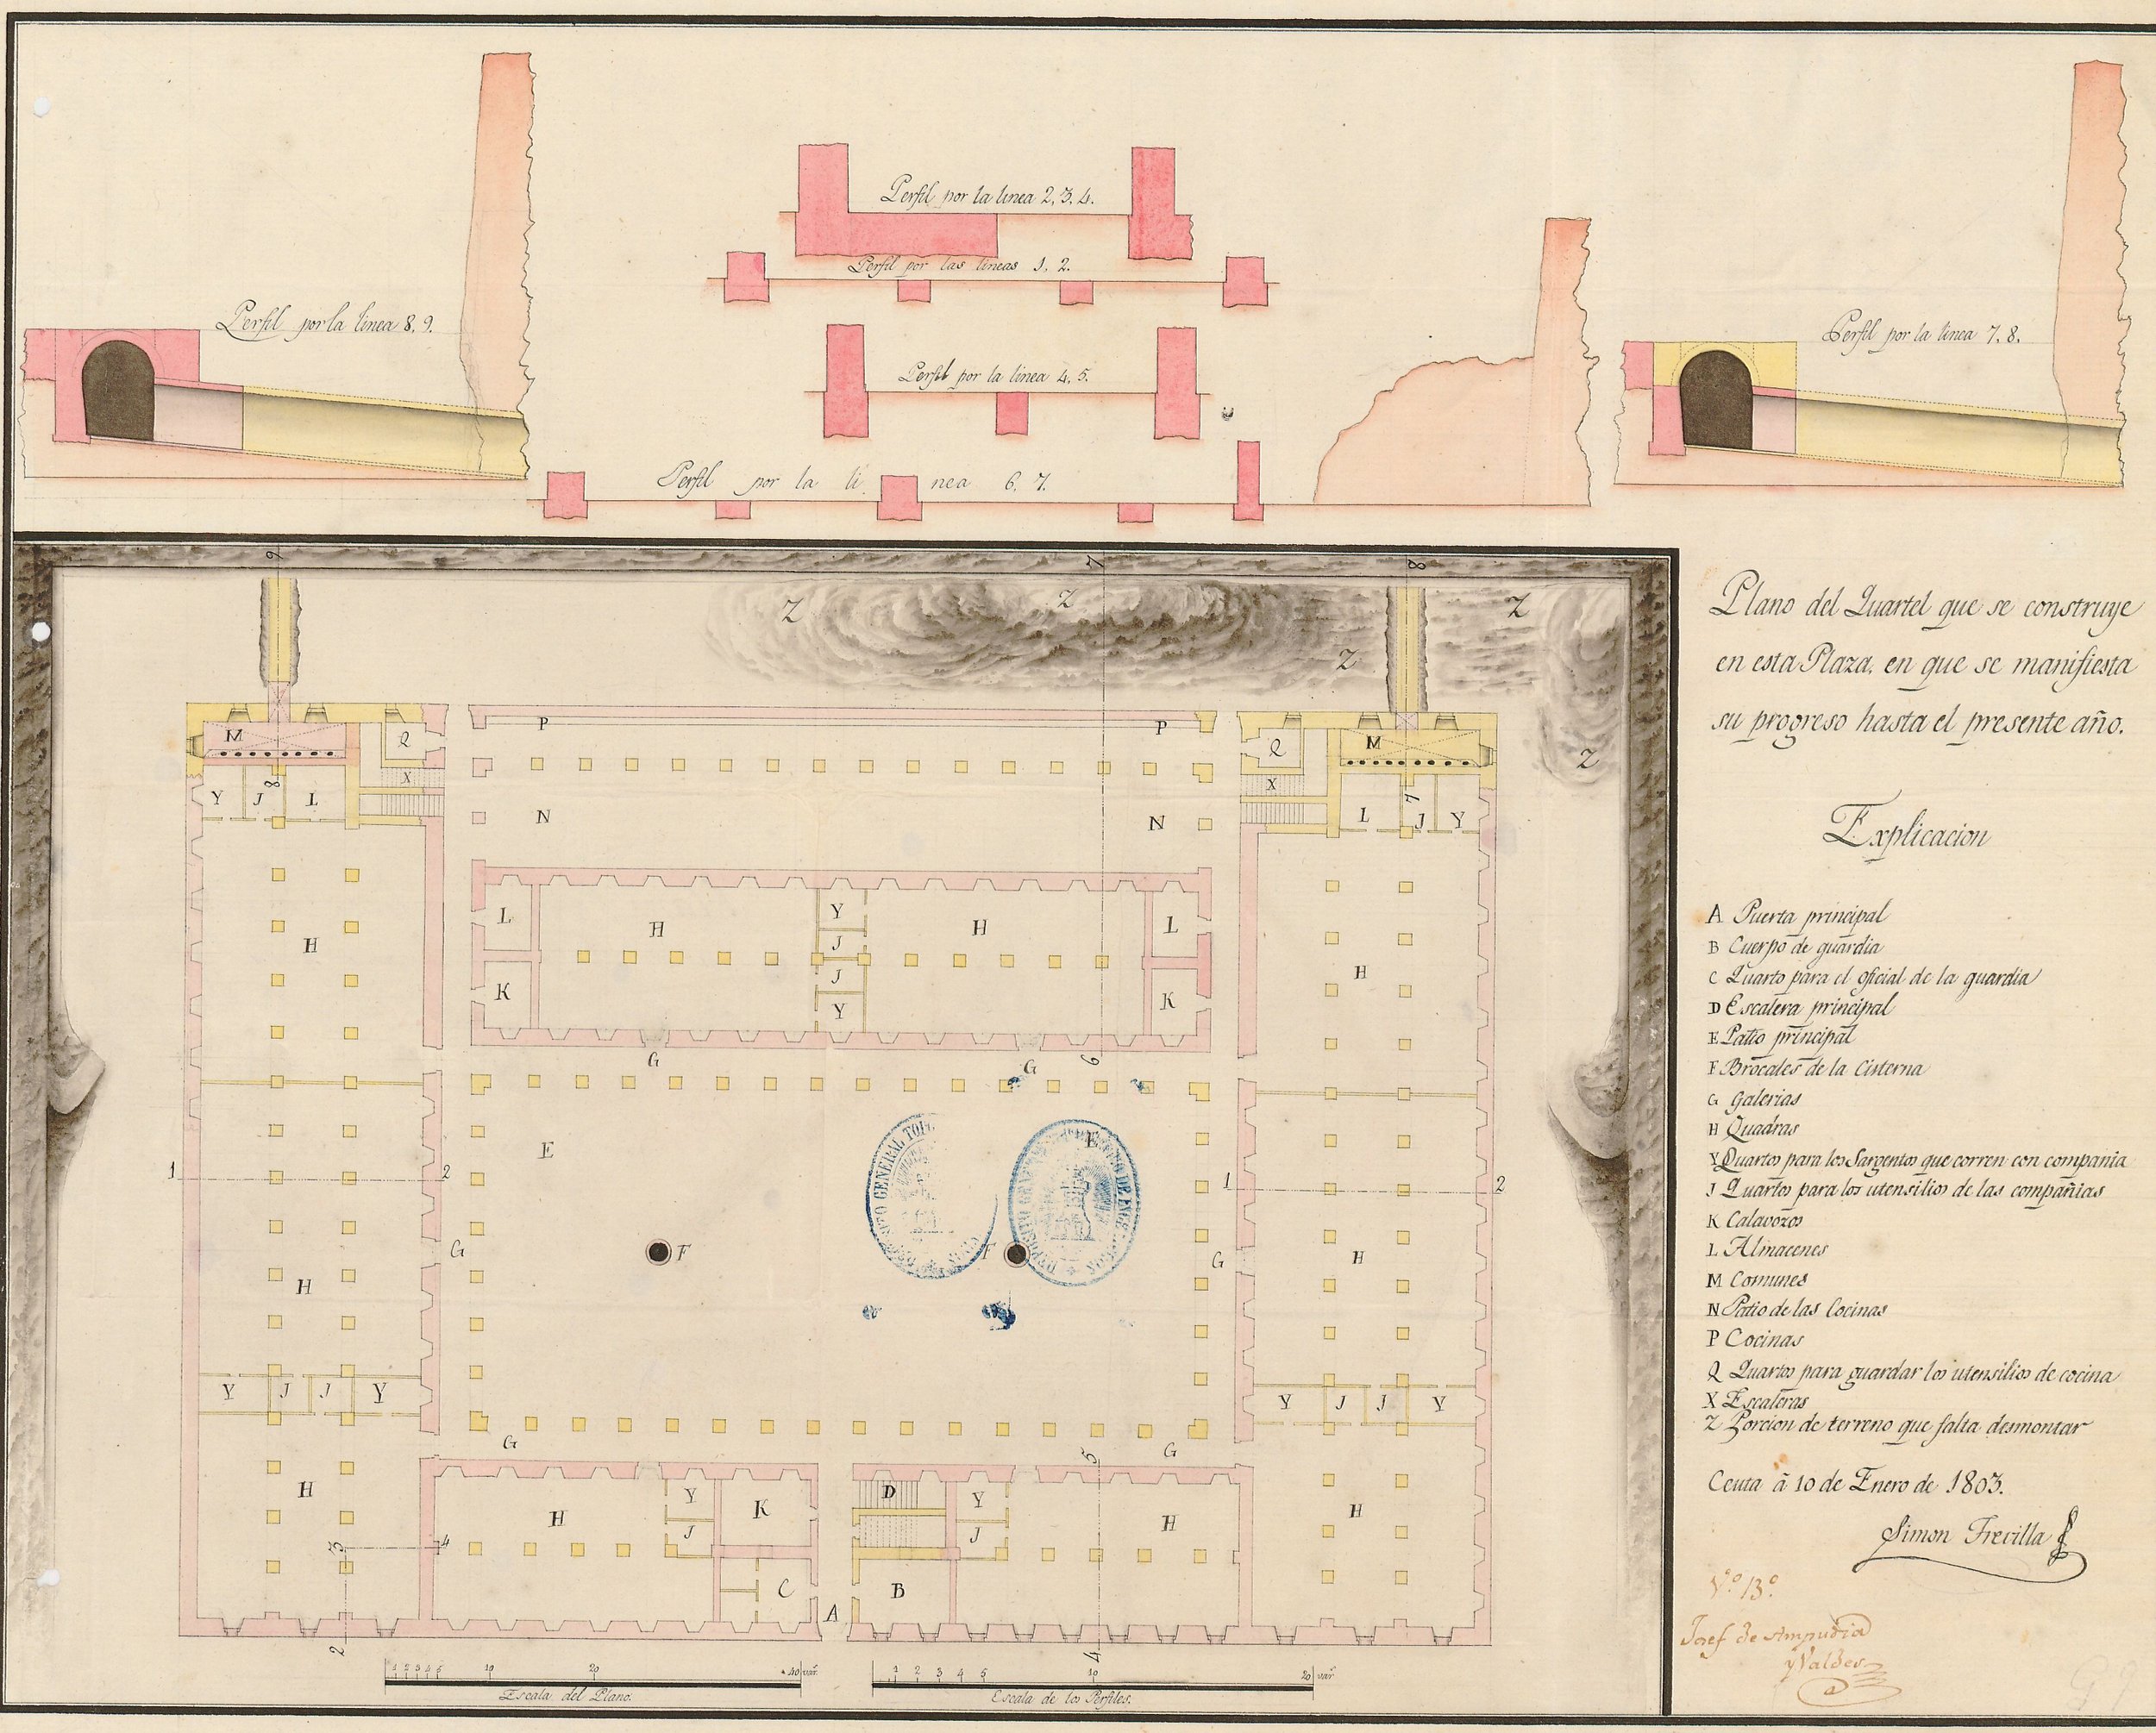 Perfil por la linea 2, 3, 4.
Perfil por las lineas 1, 2.
Perfil por la linea 8, 9.
Perfil por la linea 7, 8.
Perfil por la linea 4, 5.
Perfil por la li nea 6, 7.
9
7
8
Z
Z
Z
Z
Z
P
P
M
Q
Q
M
X
X
8
7
Y
J
L
L
J
Y
N
N
L
H
Y
H
L
H
J
H
K
J
K
Y
G
G
6
E
E
1
2
1
2
G
F
F
G
H
H
Y
J
J
Y
Y
J
J
Y
G
G
5
H
H
Y
K
D
Y
H
H
J
J
3
4
C
B
A
2
4
DEPOSITO GENERAL TOP
DEPOSITO GENERAL
1 2 3 4 5 10 20 40 var.
Escala del Plano.
1 2 3 4 5 10 20 var.
Escala de los Perfiles.
Plano del Quartel que se construye
en esta Plaza, en que se manifiesta
su progreso hasta el presente año.
Explicacion
A Puerta principal
B Cuerpo de guardia
C Quarto para el oficial de la guardia
D Escalera principal
E Patio principal
F Brocales de la Cisterna
G Galerias
H Quadras
Y Quartos para los Sargentos que corren con compañia
J Quartos para los utensilios de las compañias
K Calavozos
L Almacenes
M Comunes
N Patio de las Cocinas
P Cocinas
Q Quartos para guardar los utensilios de cocina
X Escaleras
Z Porcion de terreno que falta desmontar
Ceuta á 10 de Enero de 1803.
Simon Frecilla
Vº. Bº.
Josef de Ampudia
y Valdes